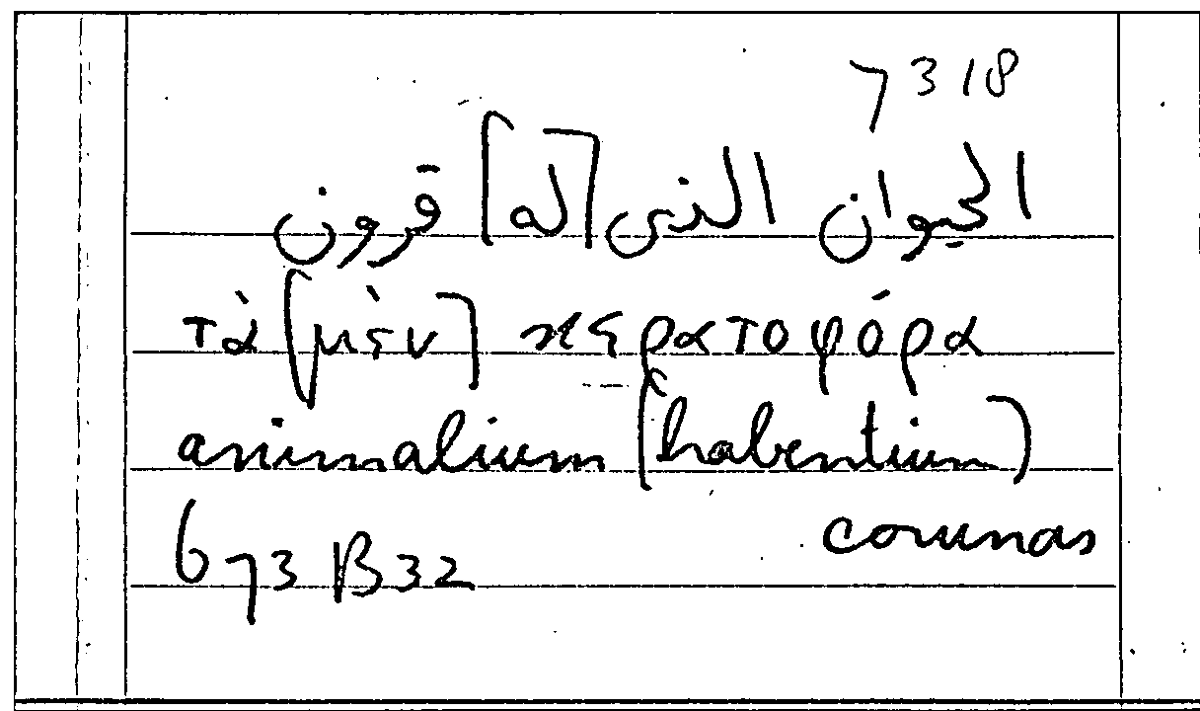 7 3 18
الحيوان الذى [له] قرون
τὰ [μὲν] κερατοφόρα
animalium (habentium)
cornuas
673 B 32